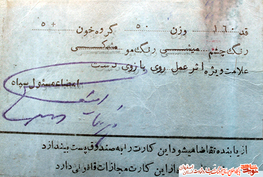 قد ۱۶۰ وزن ۵۰ گروه خون +۵
رنگ چشم میشی رنگ مو مشکی
علامت ویژه اثر عمل روی بازوی دست
امضاء مسئول سپاه
از یابنده تقاضا میشود این کارت را به صندوق پست بیندازد
از این کارت مجازات قانونی دارد